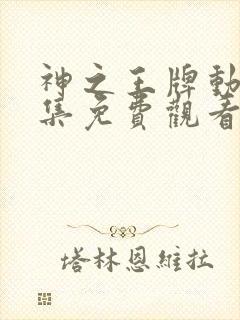 神之王牌動
集免費觀看
塔林恩維拉